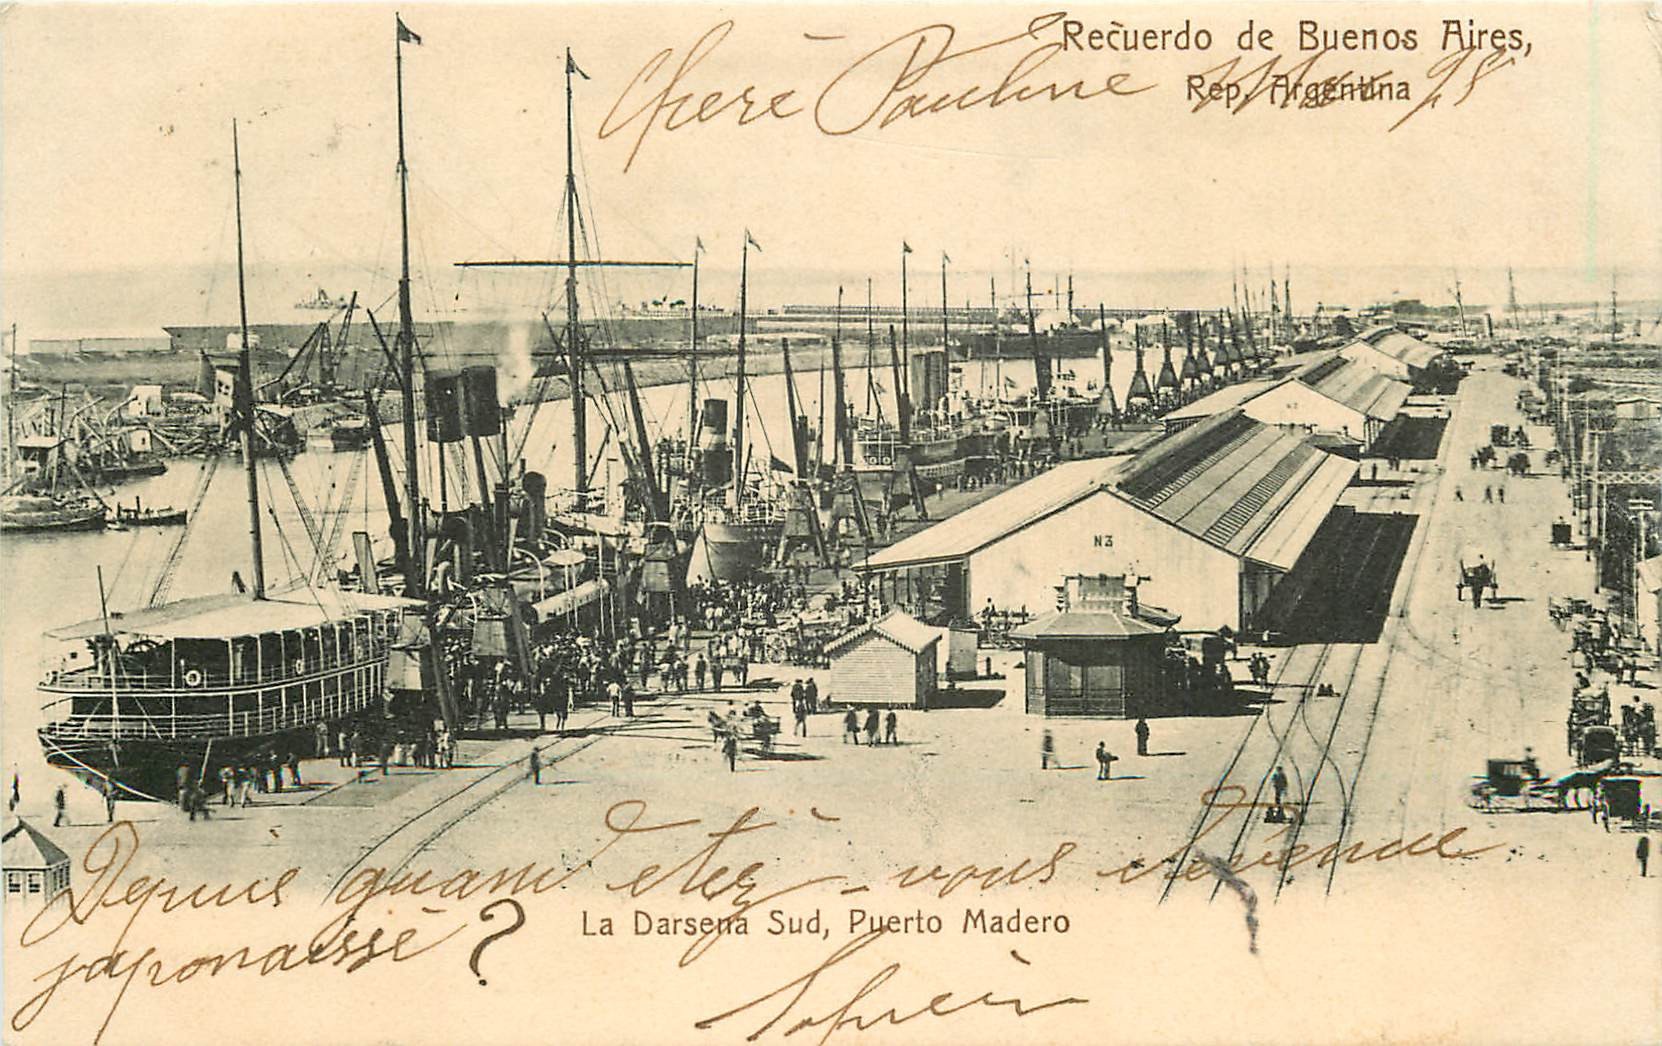 Recuerdo de Buenos Aires,
Rep. Argentina
Chère Pauline
N3
Depuis quand etez-vous devenue
japonaisse?
La Darsena Sud, Puerto Madero